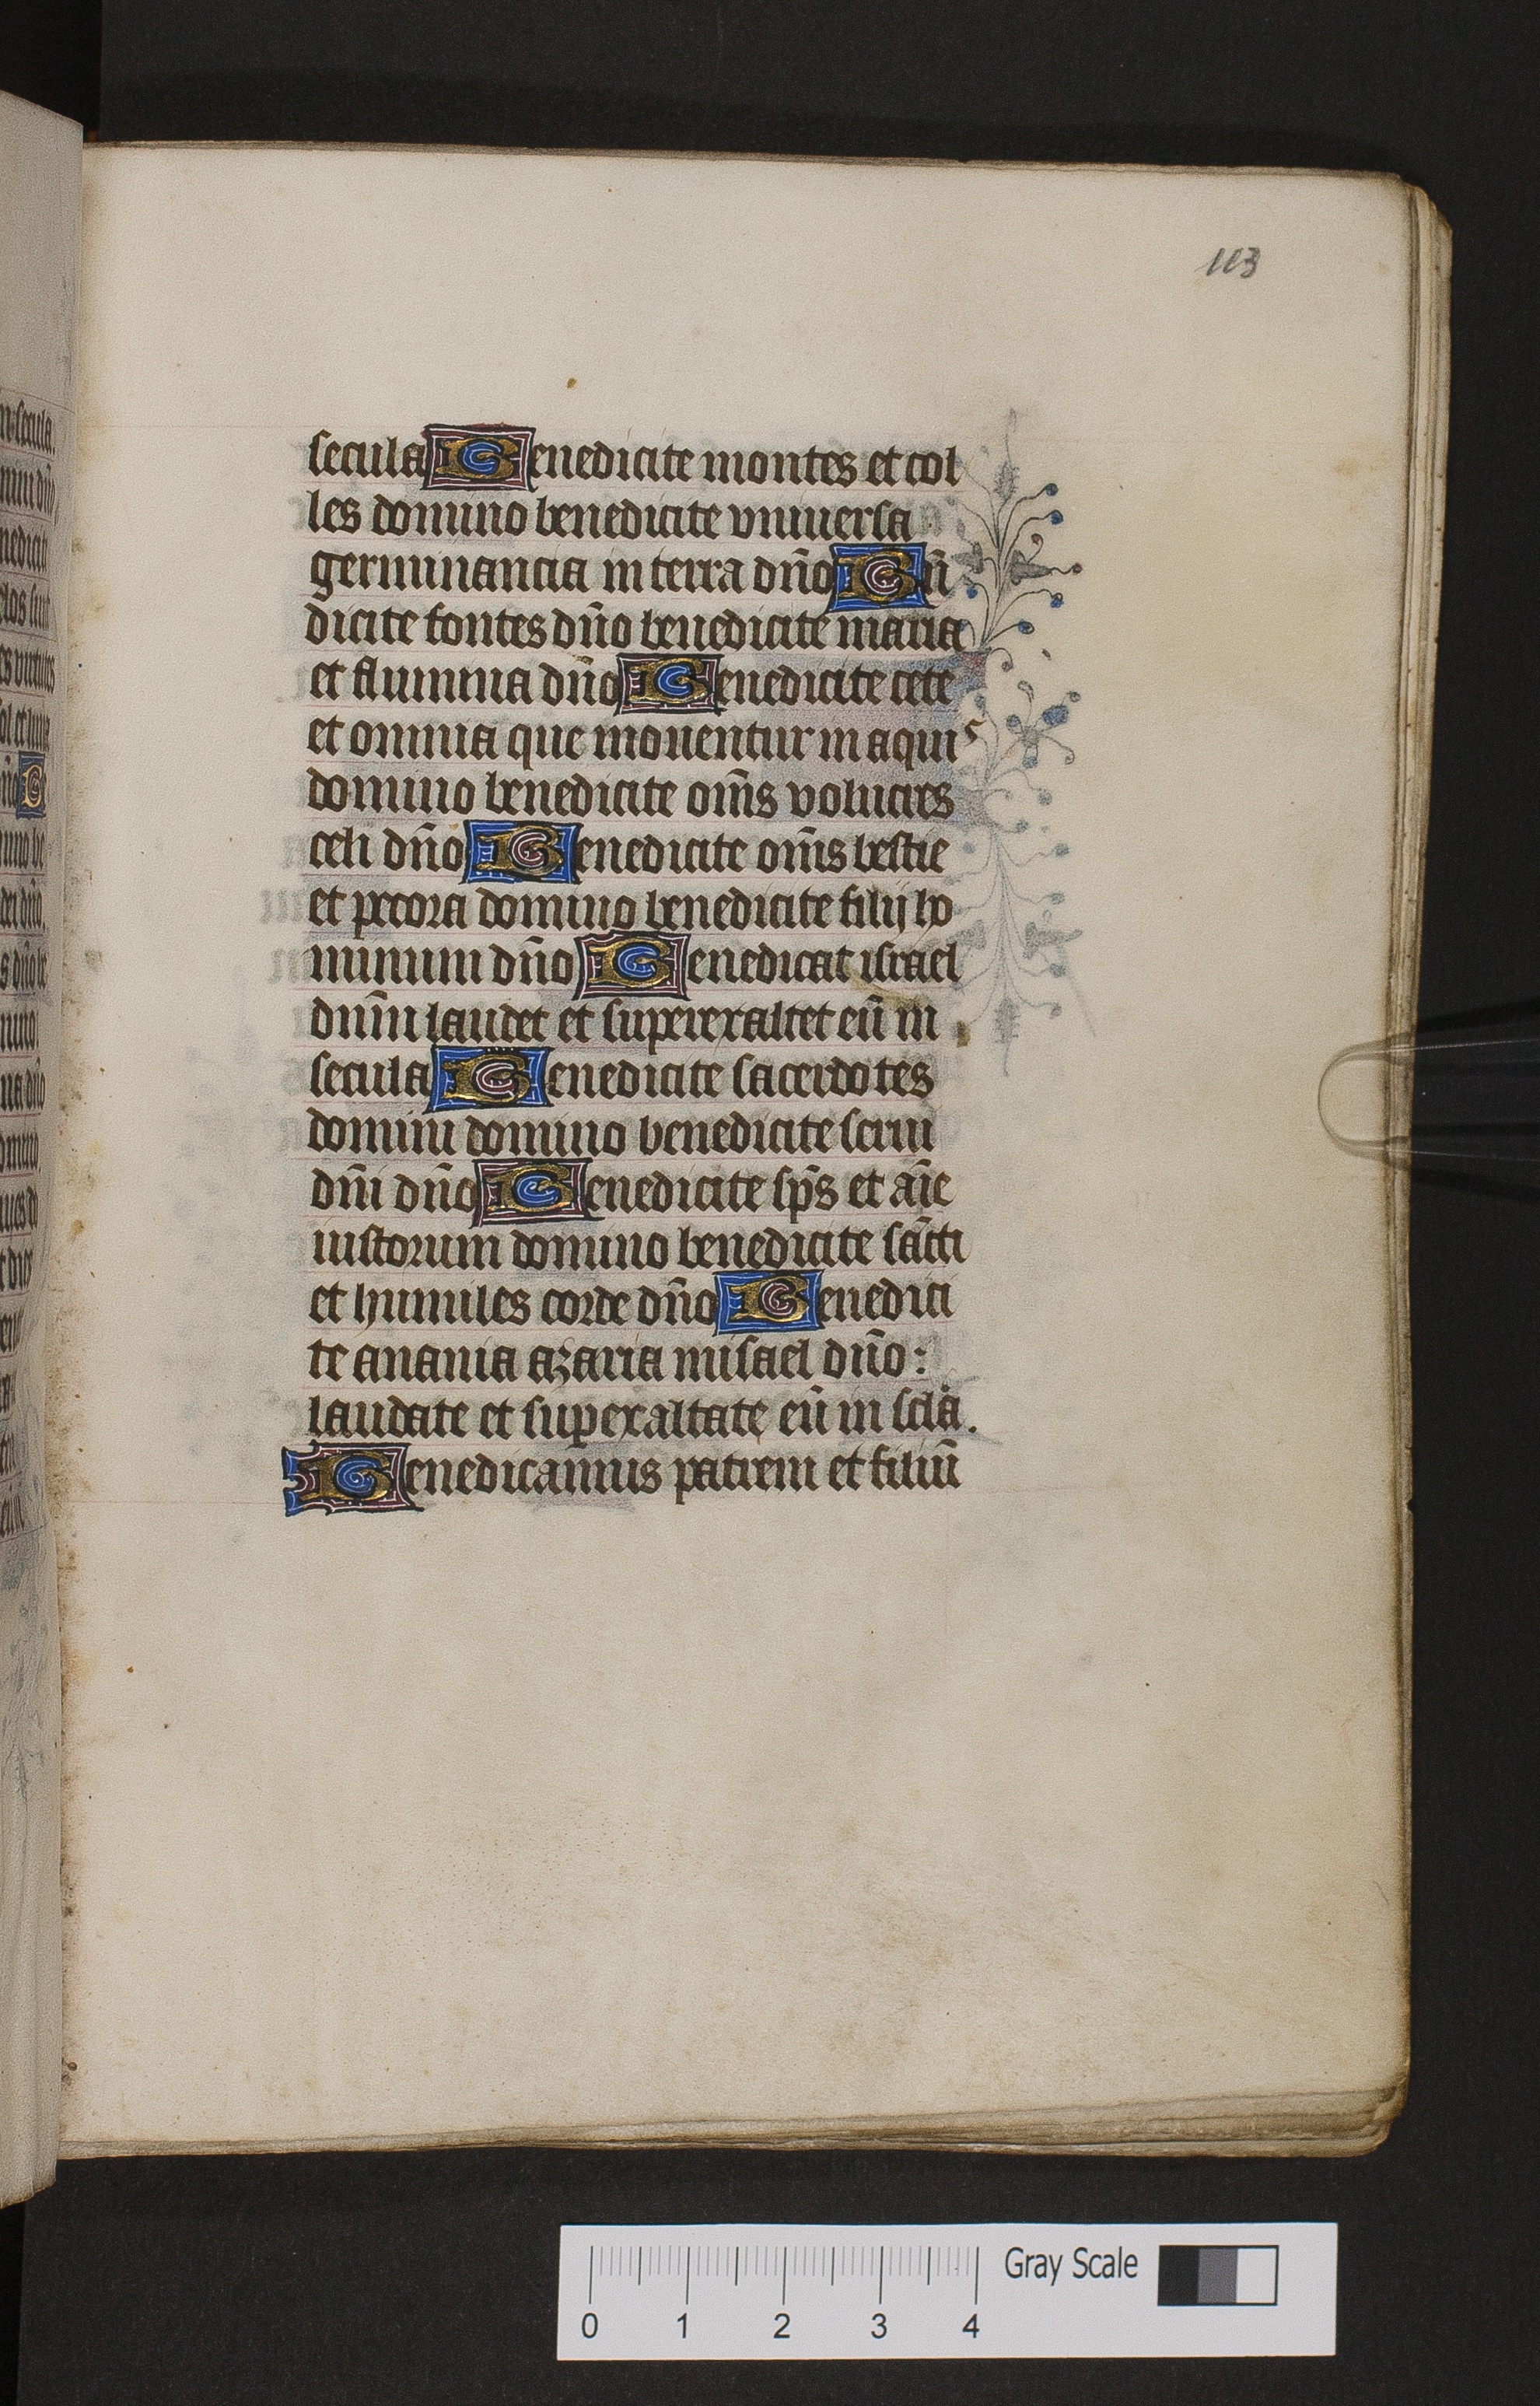 113
secula Benedicite montes et col
les domino benedicite vniuersa
germinancia in terra dño Bñ
dicite fontes dño benedicite maria
et flumina dño Benedicite cete
et omnia que mouentur in aquis
domino benedicite om̄s volucres
celi dño Benedicite om̄s bestie
et pecora domino benedicite filij ho
minum dño Benedicat israel
dnm̄ laudet et superexaltet eū in
secula Benedicite sacerdotes
domini domino benedicite serui
dñi dño Benedicite sp̄s et aīe
iustorum domino benedicite sācti
et humiles corde dño Benedici
te anania azaria misael dño:
laudate et supexaltate eū in scl̄a.
Benedicamus patrem et filiū
Gray Scale
0 1 2 3 4